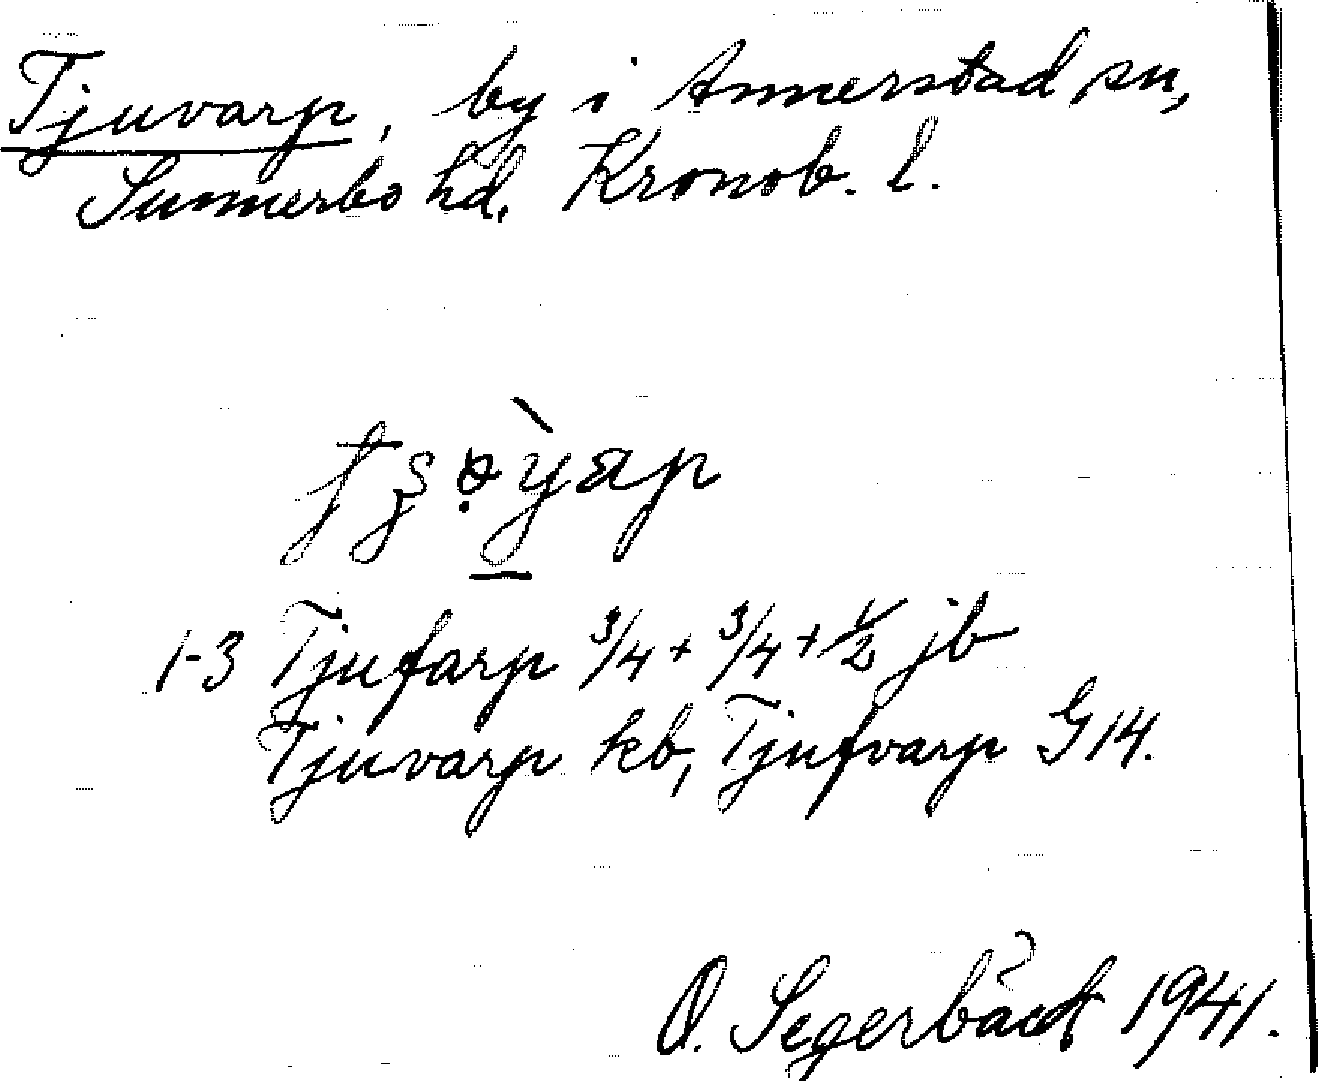 Tjuvarp, by i Annerstad sn,
Sunnerbo hd, Kronob. l.
1-3 Tjufarp 3/4 + 3/4 + 1/2 jb
Tjuvarp kb, Tjufvarp G14.
O. Segerbäck 1941.